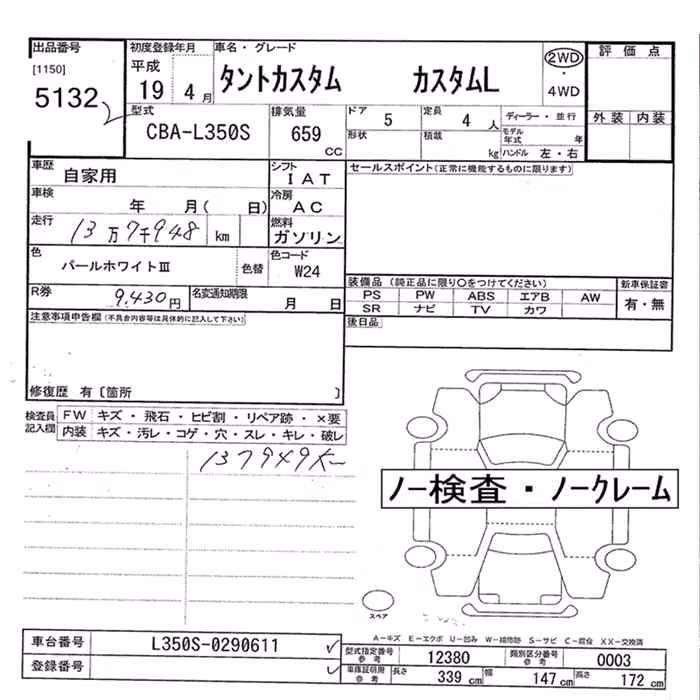 出品番号
[1150]
5132
初度登録年月
平成
19 4月
車名・グレード
タントカスタム カスタムL
2WD
・
4WD
評価点
外装 内装
型式
CBA-L350S
排気量
659
cc
ドア 5
定員 4 人
形状
積載 kg
ディーラー・並行
モデル年式 年
ハンドル 左・右
車歴 自家用
シフト IAT
車検 年 月( 日)
冷房 AC
走行 13万7千948 km
燃料 ガソリン
色 パールホワイトIII
色替
色コード W24
R券 9,430円
名変通知期限 月 日
セールスポイント(正常に機能するものに限ります)
装備品(純正品に限り○をつけてください)
PS PW ABS エアB AW
SR ナビ TV カワ
新車保証書
有・無
後日品
注意事項申告欄(不具合内容等は具体的に記入して下さい)
修復歴 有〔箇所 〕
検査員記入欄
FW キズ・飛石・ヒビ割・リペア跡・×要
内装 キズ・汚レ・コゲ・穴・スレ・キレ・破レ
137949K
ノー検査・ノークレーム
スペア
A-キズ E-エクボ U-凹み W-補修跡 S-サビ C-腐食 XX-交換済
車台番号 L350S-0290611
登録番号
型式指定番号 参考 12380
類別区分番号 参考 0003
車庫証明用 参考 長さ 339 cm 幅 147 cm 高さ 172 cm